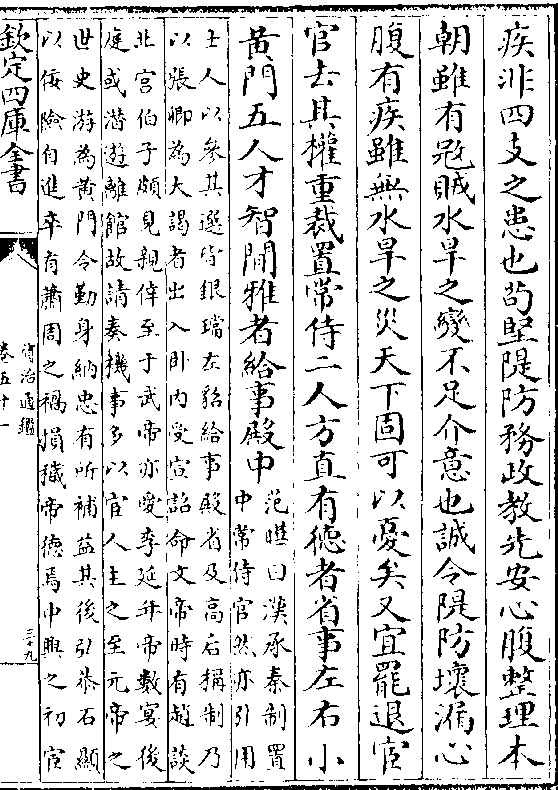 疾非四支之患也苟堅隄防務政教先安心腹整理本
朝雖有冦賊水旱之變不足介意也誠令隄防壞漏心
腹有疾雖無水旱之災天下固可以憂矣又宜罷退宦
官去其權重裁置常侍二人方直有德者省事左右小
黄門五人才智閒雅者給事殿中
范曄曰漢承秦制置
中常侍官然亦引用
士人以參其選皆銀璫左貂給事殿省及高后稱制乃
以張卿為大謁者出入卧内受宣詔命文帝時有趙談
北宮伯子頗見親倖至于武帝亦愛李延年帝數宴後
庭或潛遊離館故請奏機事多以宦人主之至元帝之
世史游為黄門令勤身納忠有所補益其後引恭石顯
以佞險自進卒有蕭周之禍損穢帝德焉中興之初宦
欽定四庫全書
資治通鑑
卷五十一
三十九